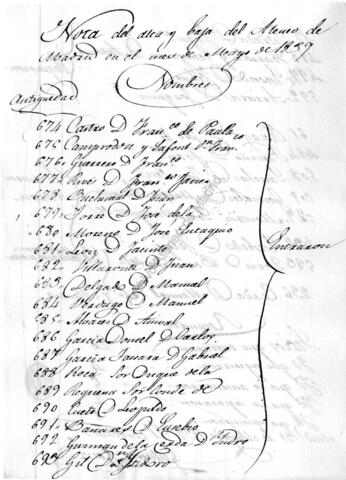 Nota del alta y baja del Ateneo de
Madrid en el mes de Mayo de 1859
Nombres
Antiguedad
674 Castro D. Franco de Paula
675 Camprodon y Lafont Dn Franco
676 Guerrero D. Franco
677 Ruiz D. Franco Javier
678 D. Juan
679 Torre D. José de la
680 Moreno D. José Eustaquio
681 D. Jacinto
682 Villaronte D. Juan
683 Delgado D. Manuel
684 Verdugo D. Manuel
685 Alvarez D. Anival
686 Garcia Doncel D. Carlos
687 Garcia Tassara D. Gabriel
688 Roca Sor Duque de la
689 Requena Sor Conde de
690 Cueto D. Leopoldo
691 Bañares D. Eusebio
692 Guzman de la Cerda D. Isidro
693 Gil D. Isidro
Entraron